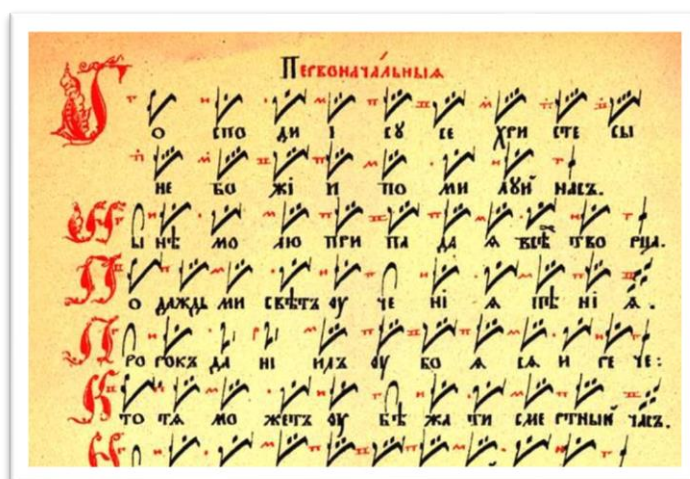 Первонача́льныѧ
Го спо ди і сѹ се хри сте сы
не бо жі и по ми лѹй насъ.
Ны нѣ мо лю при па да ѧ всѣ тво рца.
По даждь ми свѣтъ ѹ че ні ѧ пѣ ні ѧ.
Про рокъ да ні илъ ѹ бо ѧ сѧ и ре че:
Кто тѧ мо жетъ ѹ бѣ жа ти сме ртный часъ.
Н